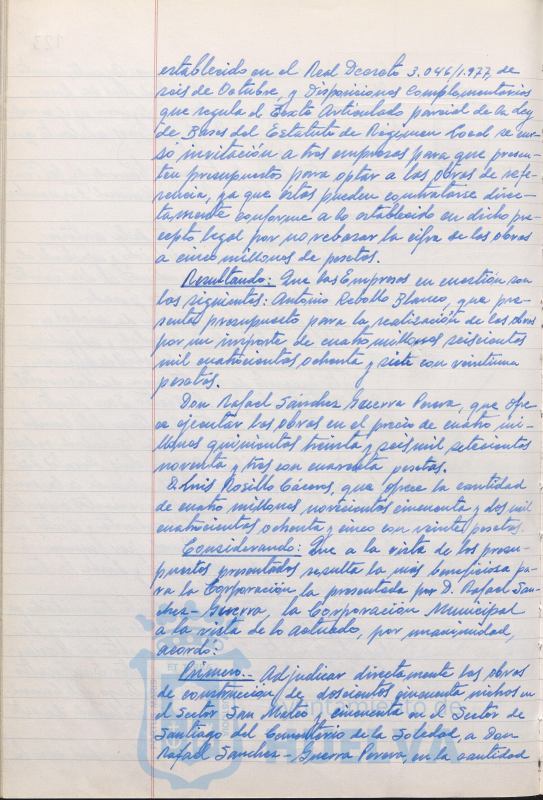 establecido en el Real Decreto 3.046/1.977, de
seis de Octubre, y Disposiciones Complementarias
que regula el Texto Articulado parcial de la Ley
de Bases del Estatuto de Régimen Local se cur-
só invitación a tres empresas para que presen-
ten presupuesto para optar a las obras de refe-
rencia, ya que éstas pueden contratarse direc-
tamente conforme a lo establecido en dicho pre-
cepto legal por no rebasar la cifra de las obras
a cinco millones de pesetas.
Resultando: Que las Empresas en cuestión son
las siguientes: Antonio Rebollo Blanco, que pre-
senta presupuesto para la realización de las obras
por un importe de cuatro millones seiscientos
mil cuatrocientos ochenta y siete con veintiuna
pesetas.
Don Rafael Sánchez Guerra Perera, que ofre-
ce ejecutar las obras en el precio de cuatro mi-
llones quinientos treinta y seis mil setecientos
noventa y tres con cuarenta pesetas.
D. Luis Rosillo Cáceres, que ofrece la cantidad
de cuatro millones novecientos cincuenta y dos mil
cuatrocientos ochenta y cinco con veinte pesetas.
Considerando: Que a la vista de los presu-
puestos presentados resulta la más beneficiosa pa-
ra la Corporación la presentada por D. Rafael San-
chez-Guerra la Corporación Municipal
a la vista de lo actuado, por unanimidad,
acordó:
Primero.- Adjudicar directamente las obras
de construcción de doscientos cincuenta nichos en
el Sector San Mateo y cincuenta en el Sector de
Santiago del Cementerio de la Soledad, a Don
Rafael Sanchez-Guerra Perera, en la cantidad
Ayuntamiento de
HUELVA